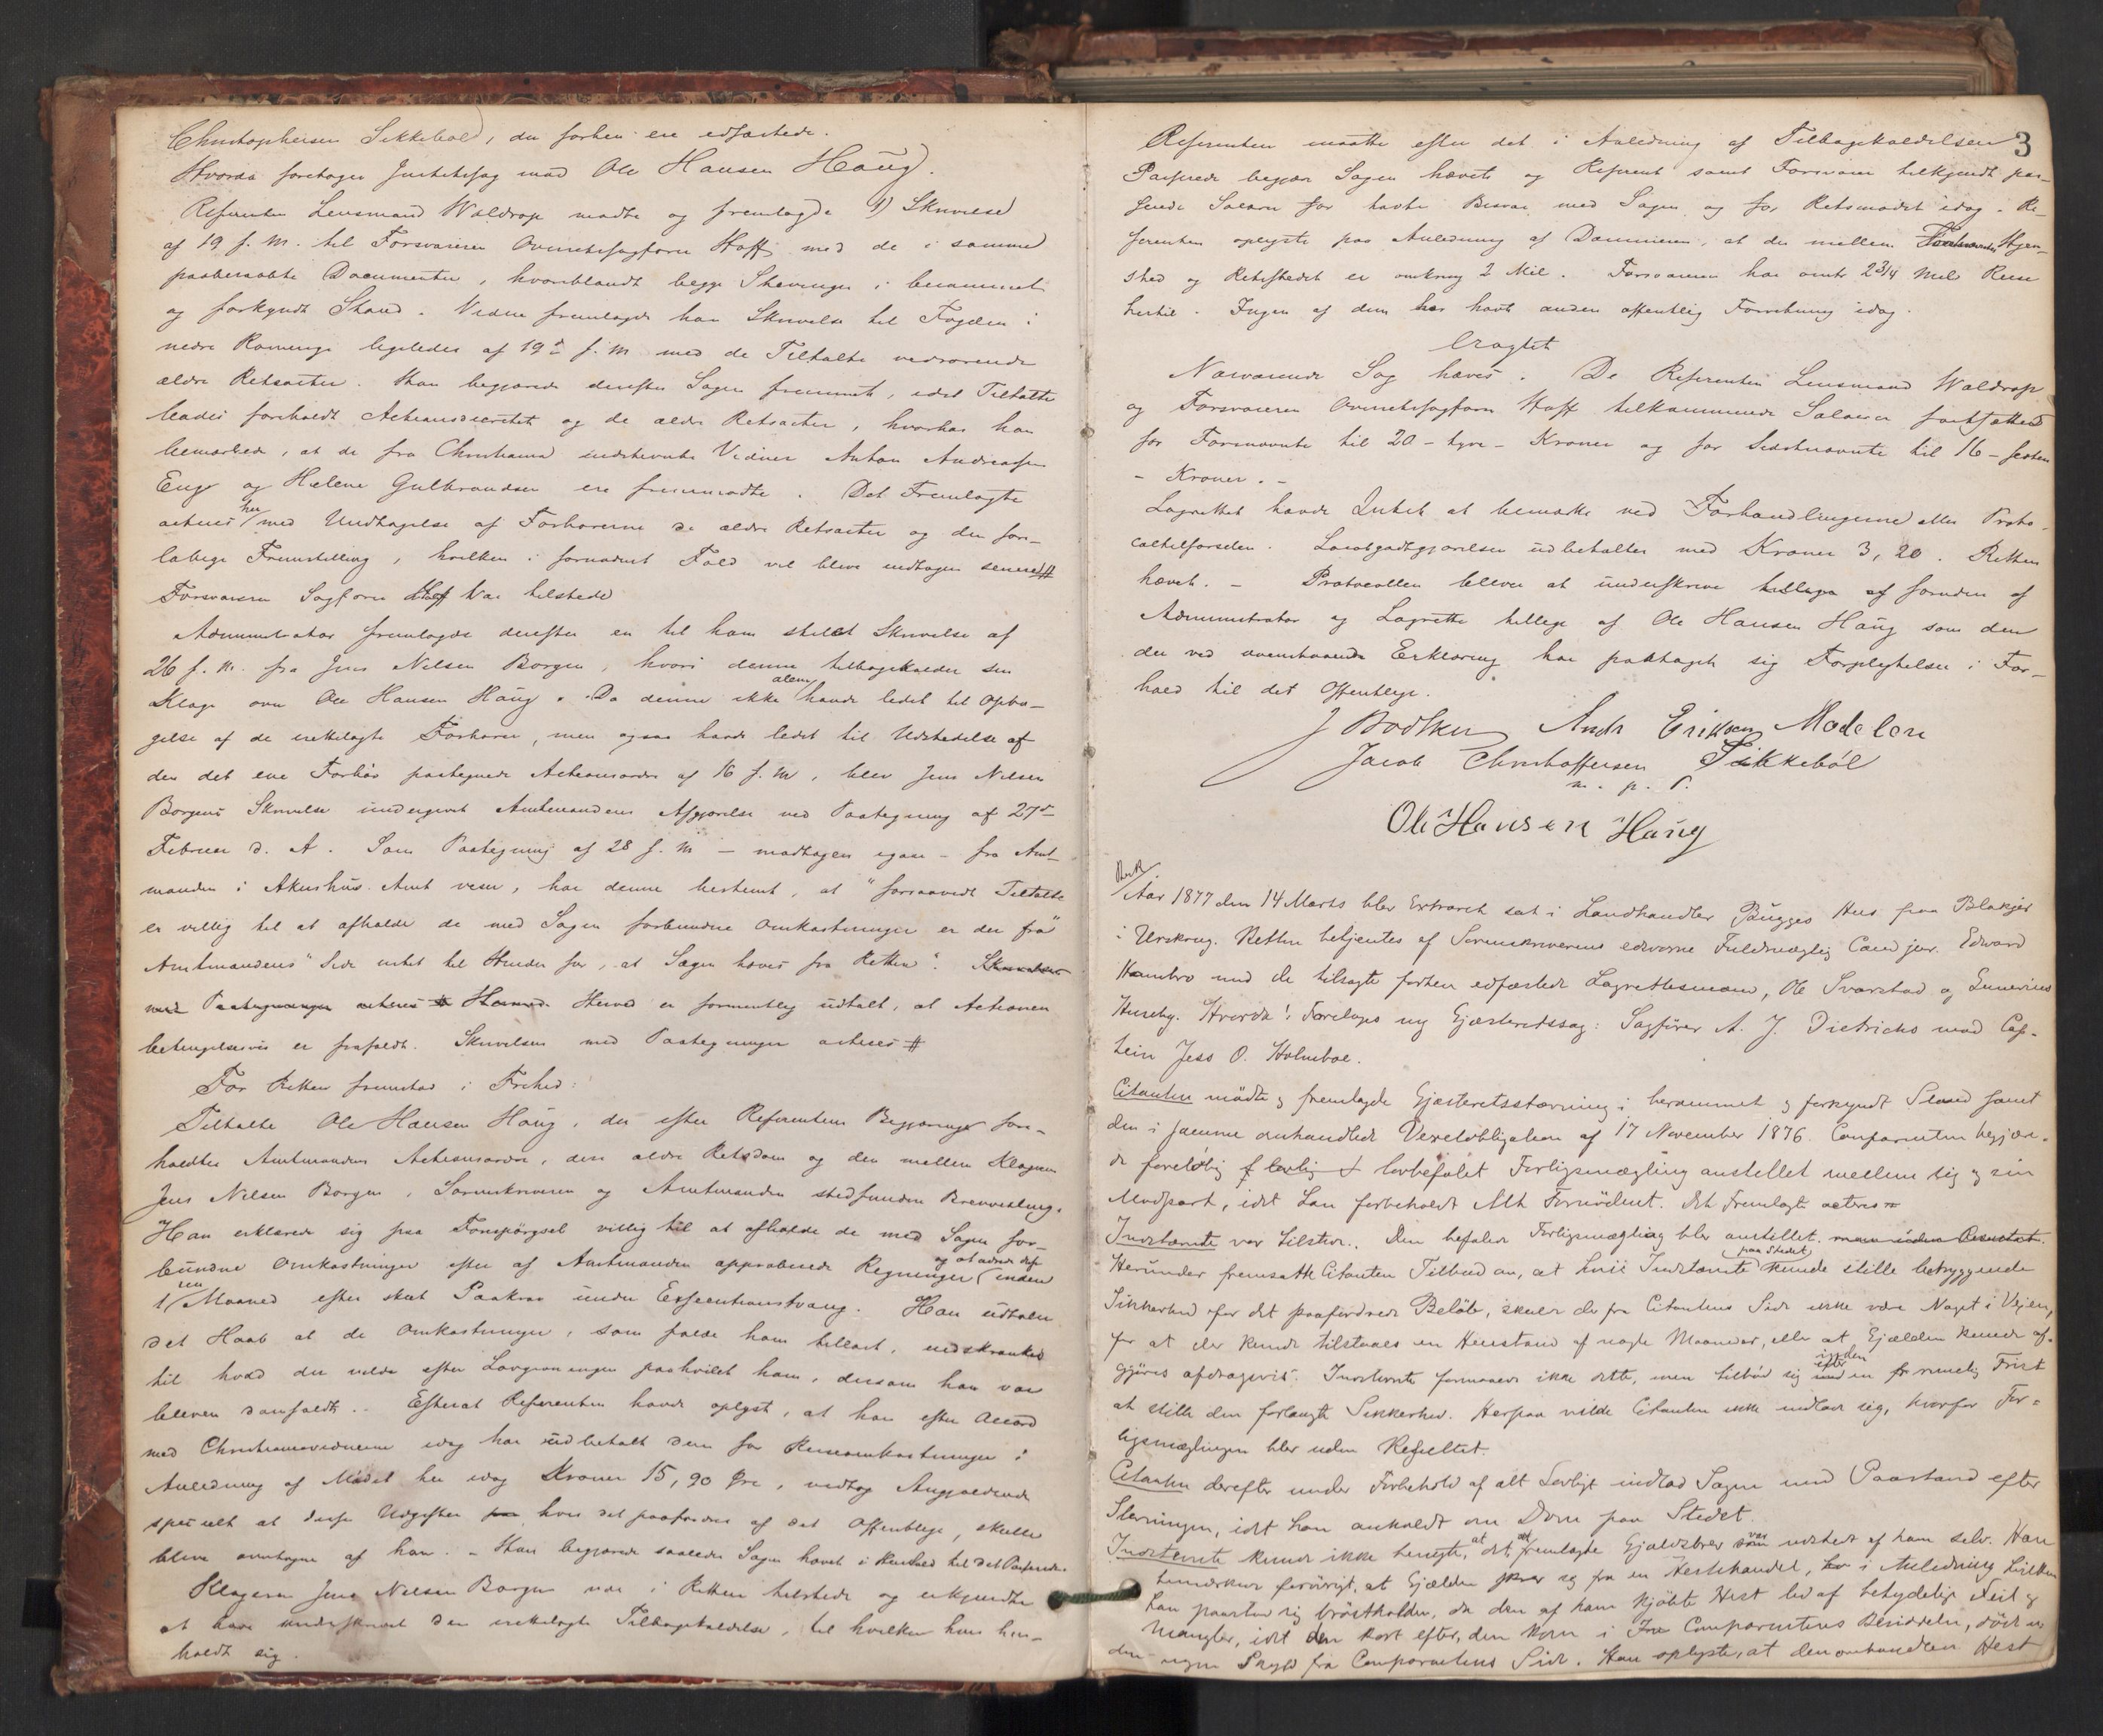 Christophersen Sikkebøl, der forhen ere edfæstede.
Hvorda foretoges Justitssag mod Ole Hansen Haug.
Referenten Lensmand Waldrop mødte og fremlagde 1) Skrivelse
af 19 f. M. til Forsvareren Overretssagfører Hoff med de i samme
paaberaabte Documenter, hvoriblandt begge Stevninger i berammet
og forkyndt Stand. Videre fremlagde han Skrivelse til Fogden i
nedre Romerige ligeledes af 19de f. M. med de Tiltalte vedrørende
ældre Retsacter. Han begjærede derefter Sagen fremmet, idet Tiltalte
blades foreholdt Actionsdecretet og de ældre Retsacter, hvorhos han
bemærkede, at de fra Christiania indstevnte Vidner Anton Andreasen
Eng og Helene Gulbrandsen ere fremmødte. Det Fremlagte
acteres her med Undtagelse af Forhørerne de ældre Retsacter og den fore-
løbige Fremstilling, hvilken i fornødent Fald vil blive indtagen senere #
Forsvareren Sagfører Hoff var tilstede
Administrator fremlagde derefter en til ham stilet Skrivelse af
26 f. M. fra Jens Nilsen Borgen, hvori denne tilbagekalder sin
Klage over Ole Hansen Haug. Da denne ikke alene havde ledet til Opta-
gelse af de irettelagte Forhører, men ogsaa havde ledet til Udstedelse af
den det ene Forhør paategnede Actionsordre af 16 f. M, blev Jens Nilsen
Borgens Skrivelse undergivet Amtmandens Afgjørelse ved Paategning af 27de
Februar d. A. Som Paategning af 28 f. M – modtagen igaar – fra Amt-
manden i Akershus Amt viser, har denne bestemt, at "forsaavidt Tiltalte
er villig til at afholde de med Sagen forbundne Omkostninger er der fra"
Amtmandens "Side intet til Hinder for, at Sagen hæves fra Retten".
med Paategninger acteres Herved er formentlig udtalt, at Actionen
betingelsesvis er frafaldt. Skrivelsen med Paategninger acteres #
For Retten fremstod i Frihed:
Tiltalte Ole Hansen Haug, der efter Referentens Begjæring fore-
holdtes Amtmandens Actionsordre, den ældre Retsdom og den mellem Klageren
Jens Nilsen Borgen, Sorenskriveren og Amtmanden stedfundne Brevvexling.
Han erklærede sig paa Forespørgsel villig til at afholde de med Sagen for-
bundne Omkostninger efter af Amtmanden approberede Regninger og at inden
1 en Maaned efter skeet Paakrav under Executionstvang. Han udtalte
det Haab at de Omkostninger, som falde ham tillast, indskrænkes
til hvad der vilde efter Lovgivningen paahvilet ham, dersom han var
bleven domfældt. Efterat Referenten havde oplyst, at han efter Accord
med Christianiavidnerne idag har udbetalt dem for Reiseomkostninger i
Anledning af Mødet her idag Kroner 15,90 Øre, vedtog Angjældende
specielt at disse Udgifter hvis det paafordres af det Offentlige, skulle
blive overtagne af ham. – Han begjærede saaledes Sagen hævet i Henhold til det Passerede.
Klageren Jens Nilsen Borgen var i Retten tilstede og erkjendte
at have underskrevet den irettelagte Tilbagekaldelse, til hvilken han hen-
holdt sig.
3
Referenten maatte efter det i Anledning af Tilbagekaldelsen
Passerede begjære Sagen hævet og Referent samt Forsvarer tilkjendt pas-
serede Salærer for havte Besvær med Sagen og for Retsmødet idag. Re-
ferenten oplyste paa Anledning af Dommeren, at der mellem Hjem-
sted og Retsstedet er omkring 2 Mil. Forsvareren har omtr. 2 3/4 Mils Reise
hertil. Ingen af dem har havt anden offentlig Forretning idag.
Eragtet
Nærværende Sag hæves. De Referenten Lensmand Waldrop
og Forsvareren Overretssagfører Hoff tilkommende Salærer fastsættes
for Førstnævnte til 20 – tyve – Kroner og for Sidstnævnte til 16 – sexten
– Kroner. –
Lagrettet havde Intet at bemærke ved Forhandlingerne eller Proto-
coltilførselen. Localgodtgjørelse udbetaltes med Kroner 3,20. Retten
hævet. – Protocollen bliver at underskrive foruden af
Administrator og Lagrette tillige af Ole Hansen Haug som den
der ved ovenstaaende Erklæring har paataget sig Forpligtelser i For-
hold til det Offentlige.
J Bødtker Andr Eriksen Modelen
Jacob Christoffersen Sikkebøl
m. p. P.
Ole Hansen Haug
Aar 1877 den 14 Marts blev Extraret sat i Landhandler Bugges Hus paa Blakjer
i Urskoug. Retten betjentes af Sorenskriverens edsvorne Fuldmægtig Cand jur. Edvard
Hambro med de tilsagte forhen edfæstede Lagrettesmænd, Ole Svarstad og Gunerius
Huseby. Hvorda: Foretoges ny Gjæsteretssag: Sagfører A. J. Dietrichs mod Cap-
tein Jess O. Holmboe.
Citanten mødte og fremlagde Gjæsteretsstævning i berammet og forkyndt Stand samt
den i samme omhandlede Vexelobligation af 17 November 1876. Comparenten begjære-
de foreløbig lovbefalet Forligsmægling anstillet mellem sig og sin
Modpart, idet han forbeholdt Alt Fornødent. Det Fremlagte acteres
Indstævnte var tilstede. Den befalede Forligsmægling blev anstillet. men uden Resultat.
Herunder fremsatte Citanten Tilbud om, at hvis Indstævnte paa Stedet kunde stille betryggende
Sikkerhed for det paafordrede Beløb, skulde der fra Citantens Side ikke være Noget i Veien,
for at der kunde tilstaaes en Henstand af nogle Maaneder, eller at Gjælden kunde af-
gjøres afdragsvis. Indstevnte formaaede ikke dette, men tilbød sig inden en rimelig Frist
at stille den forlangte Sikkerhed. Herpaa vilde Citanten ikke indlade sig, hvorfor For-
ligsmæglingen blev uden Resultat
Citanten derefter under Forbehold af alt Lovligt indlod Sagen med Paastand efter
Stevningen, idet han anholdt om Dom paa Stedet.
Indstevnte kunde ikke benegte, at det fremlagte Gjældsbrev var udstedt af ham selv. Han
bemærkede forøvrigt, at Gjælden skrev sig fra en Hestehandel, i Anledning hvilken
han paastod sig brøstholden, da den af ham kjøbte Hest led af betydelige Feil og
Mangler, idet den kort efter, den kom i Comparentens Besiddelse, døde u-
den nogen Skyld fra Comparentens Side. Han oplyste, at den omhandlede Hest